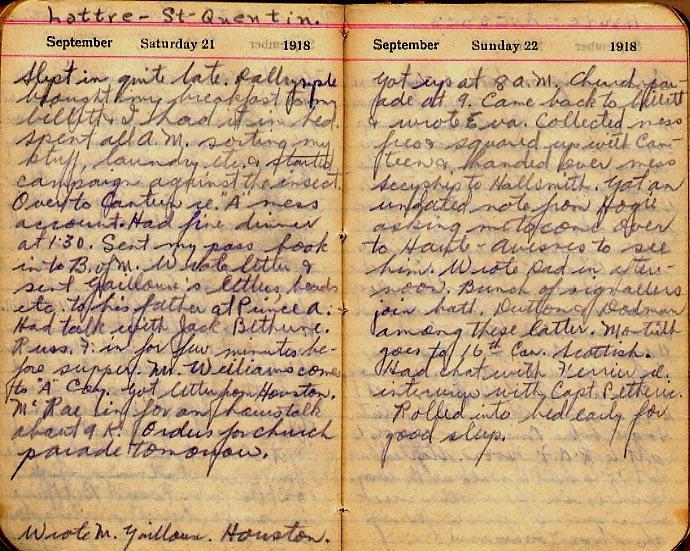 Lattre - St-Quentin.
September Saturday 21 1918
Slept in quite late. Dalrymple
brought my breakfast to my
billet & I had it in bed.
Spent all A.M. sorting my
stuff, laundry etc & started
campaign against the insect.
Over to Canteen re. 'A' mess
account. Had fine dinner
at 1:30. Sent my pass book
in to B. of M. Wrote letter &
sent Gailloux's letters, beads
etc. to his father at Prince A.
Had talk with Jack Bethune.
Russ. F. in for few minutes be-
fore supper. Mr. Williams comes
to "A" Coy. Got letter from Houston.
McRae in for an hours talk
about 9 K. Orders for church
parade tomorrow.
Wrote M. Gailloux. Houston.
September Sunday 22 1918
Got up at 8 a.m. Church pa-
rade at 9. Came back to billet
& wrote Eva. Collected mess
fees & squared up with Can-
teen & handed over mess
secyship to Hallsmith. Got an
undated note from Hogie
asking me to come over
to Haute-Avesnes to see
him. Wrote Dad in after-
noon. Bunch of signallers
join batt. Dutton & Dodman
among these latter.
goes to 16th Can. Scottish.
Had chat with Ferrier re.
interview with Capt. Petherie.
Rolled into bed early for
good sleep.